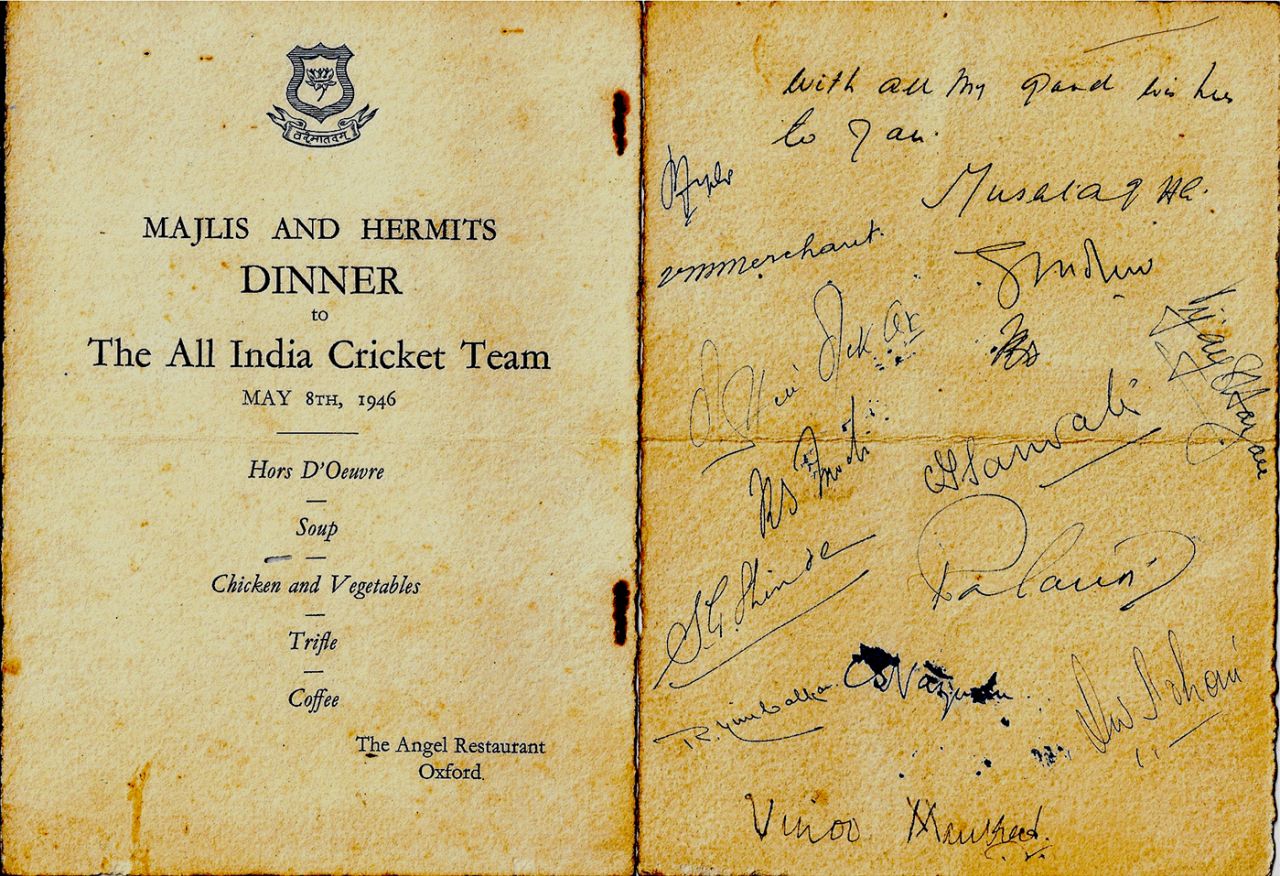 वन्देमातरम्
MAJLIS AND HERMITS
DINNER
to
The All India Cricket Team
MAY 8TH, 1946
Hors D'Oeuvre
Soup
Chicken and Vegetables
Trifle
Coffee
The Angel Restaurant
Oxford.
With all my good wishes
to you.
Mushtaq Ali.
VMMerchant.
RS Modi
CTSarwate
S.G. Shinde
R. Nimbalkar
CSNayudu
Vinoo Mankad.